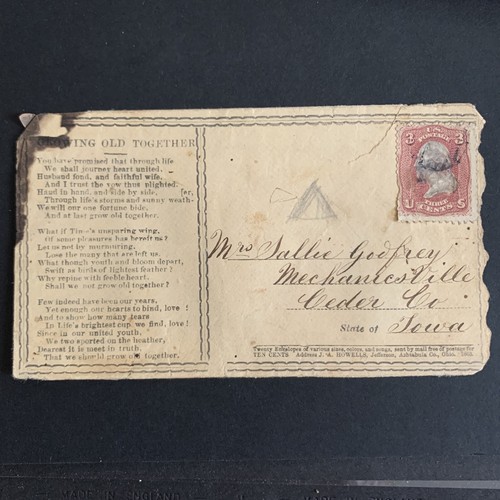 GROWING OLD TOGETHER
You have promised that through life
We shall journey heart united.
Husband fond, and faithful wife,
And I trust the vow thus plighted.
Hand in hand, and side by side, [er,
Through life's storms and sunny weath-
We will our one fortune bide,
And at last grow old together.
What if Time's unsparing wing,
Of some pleasures has bereft us?
Let us not by murmuring,
Lose the many that are left us.
What though youth and bloom depart,
Swift as birds of lightest feather?
Why repine with feeble heart,
Shall we not grow old together?
Few indeed have been our years,
Yet enough our hearts to bind, love!
And to show how many tears
In Life's brightest cup, we find, love!
Since in our united youth,
We two sported on the heather,
Dearest it is meet in truth,
That we should grow old together.
U.S.
POSTAGE
3 3
U THREE S
CENTS
Mrs Sallie Godfrey
Mechanicsville
Ceder Co
State of Iowa
Twenty Envelopes of various sizes, colors, and songs, sent by mail free of postage for
TEN CENTS Address J. A. HOWELLS, Jefferson, Ashtabula Co., Ohio.
MADE IN ENGLAND